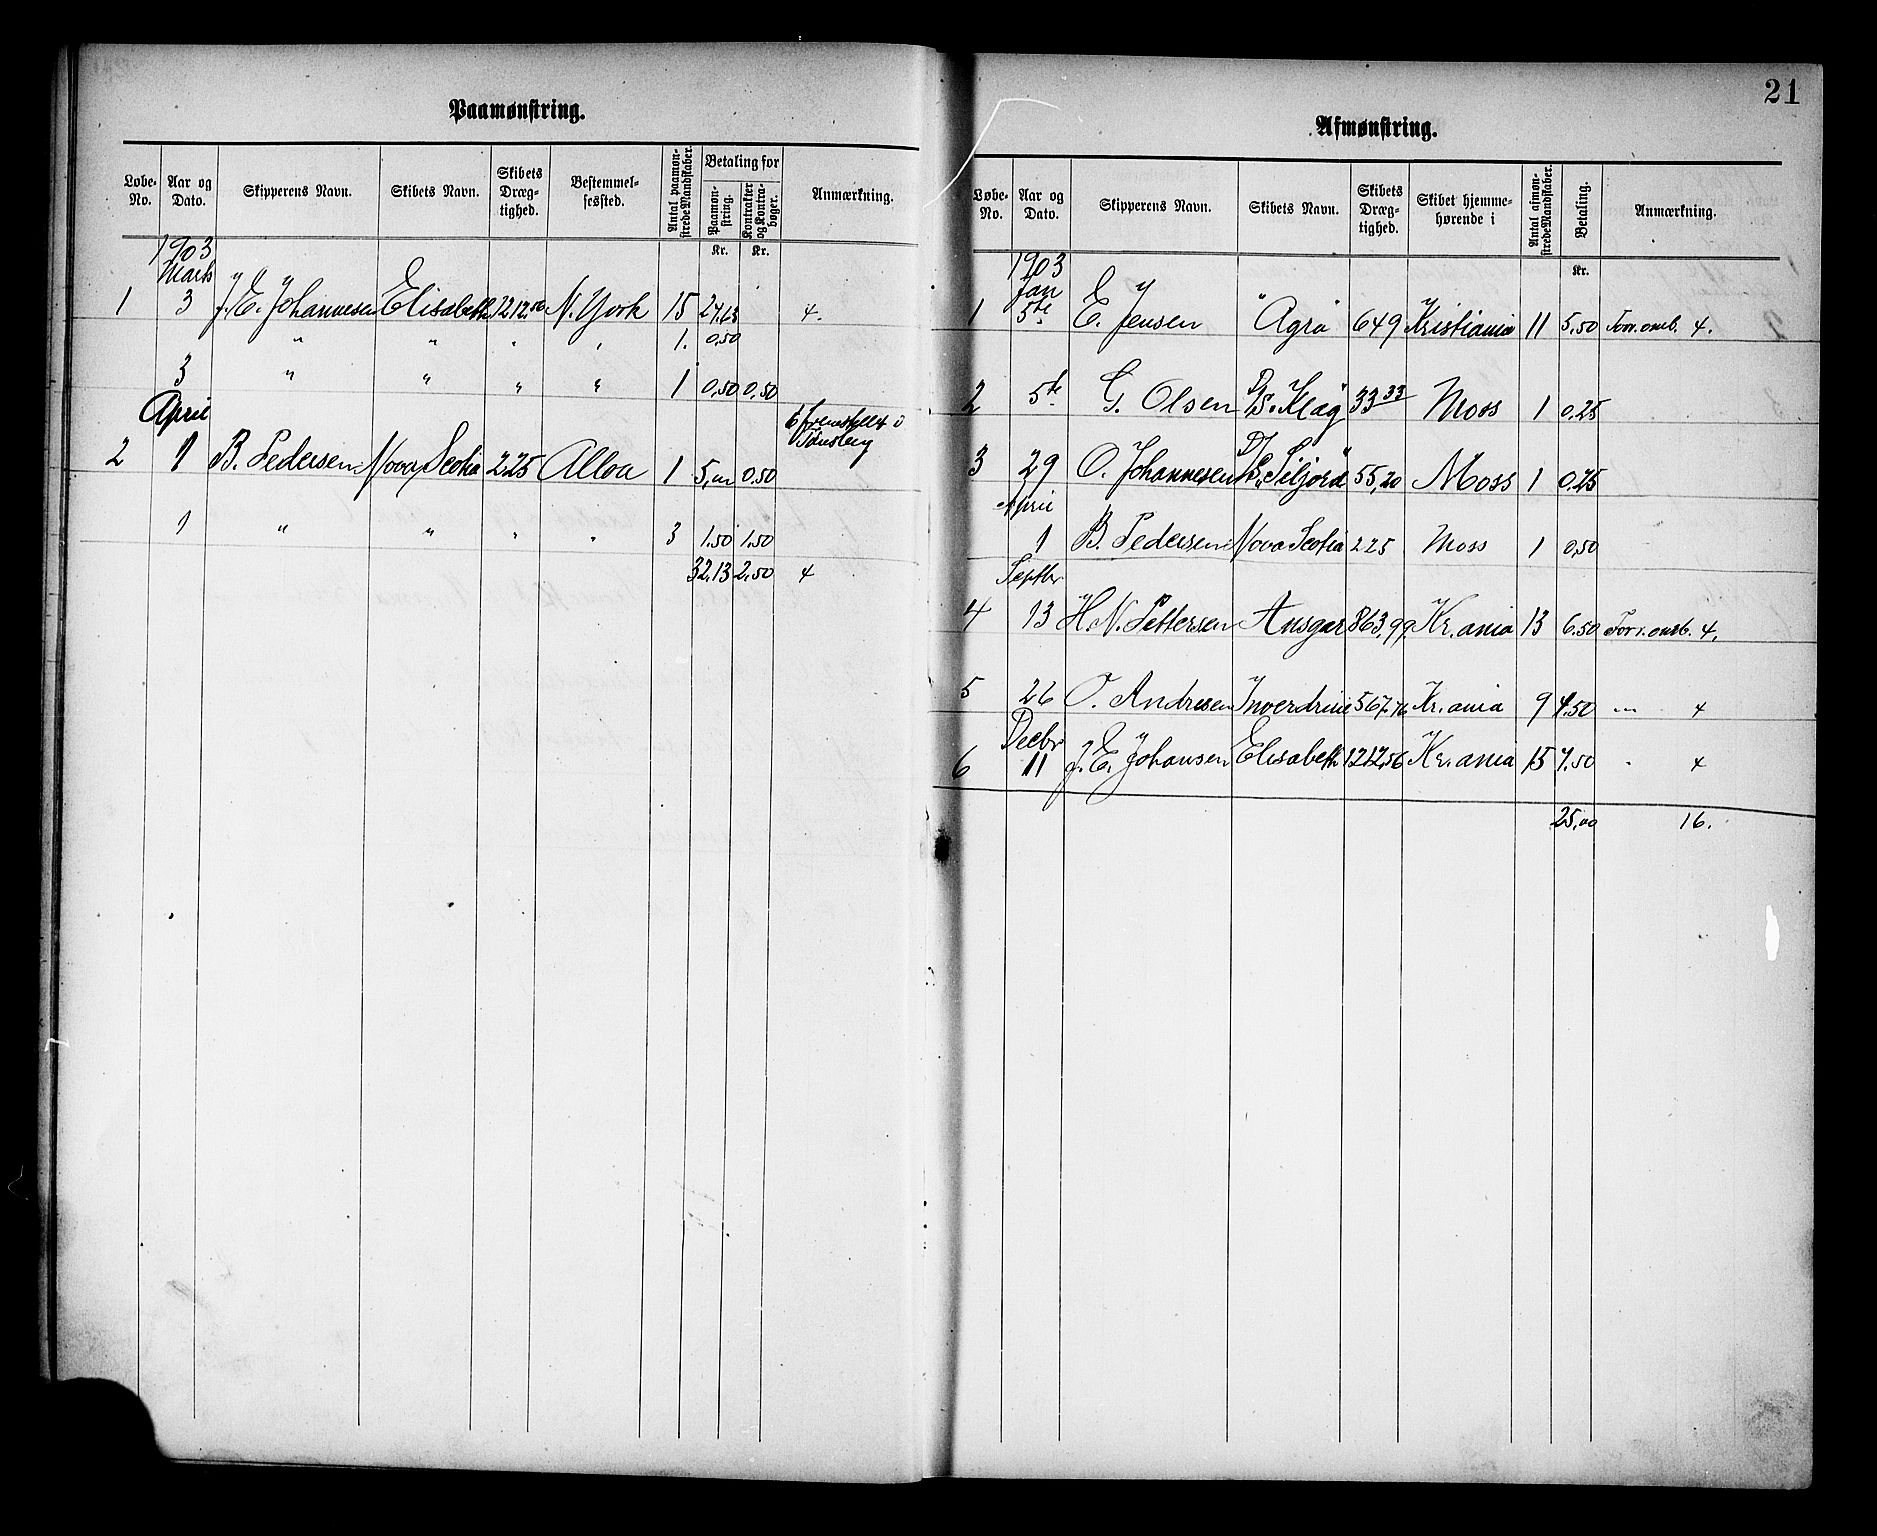 Paamønstring.
Løbe-No. | Aar og Dato. | Skipperens Navn. | Skibets Navn. | Skibets Dræg-tighed. | Bestemmel-sessted. | Antal paamøn-strede Mandskaber. | Betaling for Paamøn-string. | Kontrakter og Kontra-bøger. | Anmærkning.
Kr. Kr.
1903
Marts
1 3 J. E. Johannesen Elisabeth 1212.56 N. York 15 24.63 4.
" " " " 1. 0,50
3 " " " " 1 0,50 0,50
April
2 1 B. Pedersen Nova Scotia 225 Alloa 1 5,00 0,50 Tønsberg
1 " " " " 3 1.50 1,50
32,13 2,50 4
21
Afmønstring.
Løbe-No. | Aar og Dato. | Skipperens Navn. | Skibets Navn. | Skibets Dræg-tighed. | Skibet hjemme-hørende i | Antal afmøn-strede Mandskaber. | Betaling. | Anmærkning.
Kr.
1903
Jan
1 5te E. Jensen "Agra" 649 Kristiania 11 5,50 Forr. omb. 4.
2 5te G. Olsen D/S. "Klag" 33 33 Moss 1 0,25
3 29 O. Johannesen D/S. "Siljord" 55,20 Moss 1 0,25
April
1 B. Pedersen Nova Scotia 225 Moss 1 0,50
Septbr
4 13 H. N. Pettersen Ansgar 863,99 Kr.ania 13 6.50 Forr. omb. 4.
5 26 O. Andresen Inverdruie 567.76 Kr.ania 9 4.50 " 4
Decbr
6 11 J. E. Johansen Elisabeth 1212,56 Kr.ania 15 7.50 " 4
25,00 16.